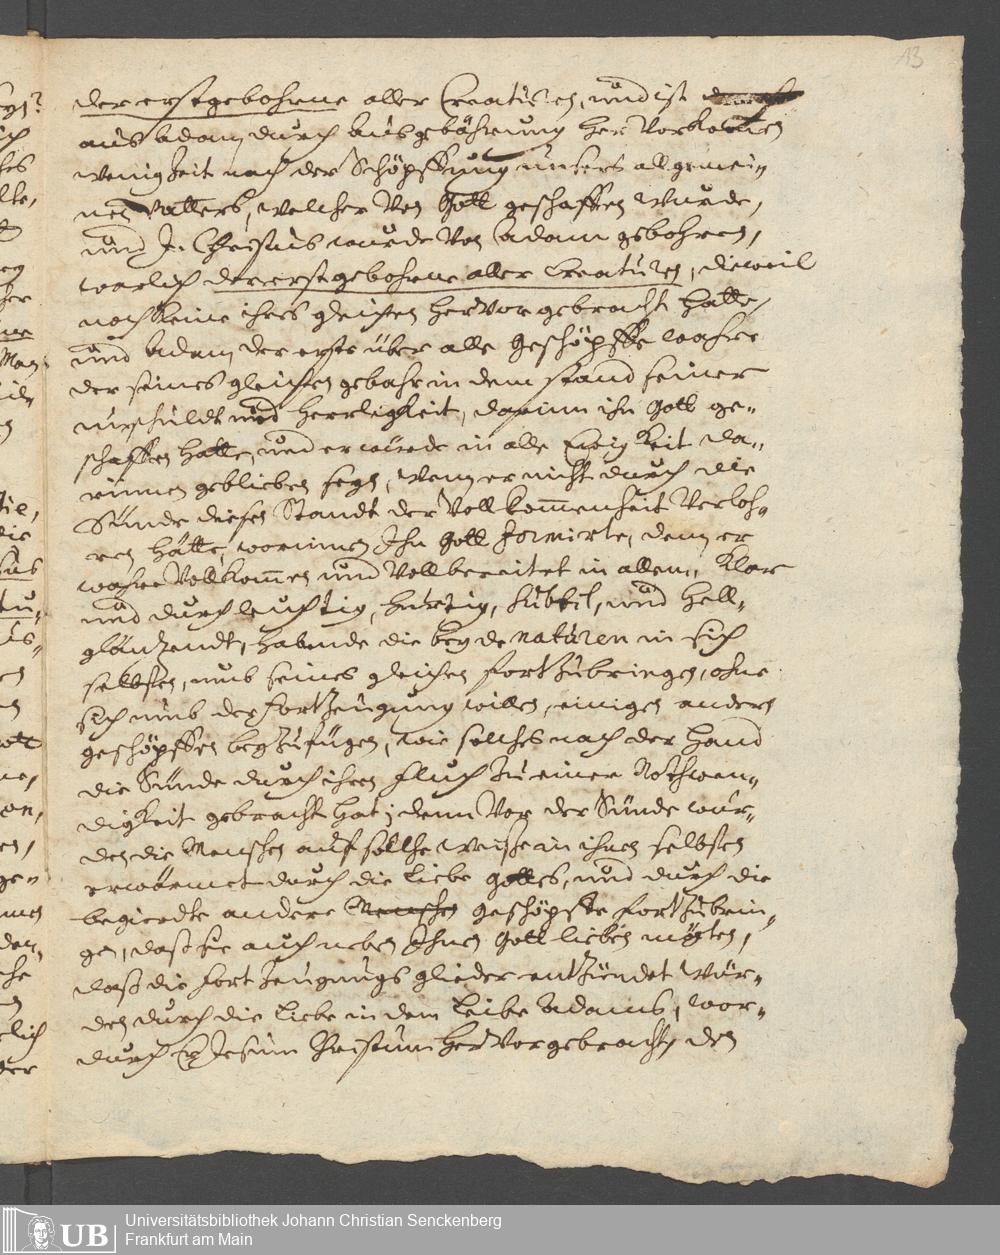 13
der erstgebohrne aller Creaturen, und ist
aus Adam durch Ausgebährung her vorkommen
wenig Zeit nach der Schöpffung unsers allgemei-
nen Vatters, welcher von Gott geschaffen wurde,
und J. Christus wurde von Adam gebohren,
warlich der erstgebohrne aller Creaturen, dieweil
noch keine ihres gleichen hervorgebracht hatte,
und Adam der erste über alle Geschöpffe wahre
der seines gleichen gebahr in dem stand seiner
unschuldt und Herrligkeit, darinn ihn Gott ge-
schaffen hatte, und er würde in alle Ewigkeit da-
rinnen geblieben seyn, wenn er nicht durch die
Sünde diesen Standt der Vollkom̄enheit verloh-
ren hätte, worinnen Ihn Gott formirte, denn er
wahre Vollkom̄en und Vollbereitet in allem, Klar
und durchleuchtig, hurtig, subtil, und hell-
gläntzendt, habende die beyde naturen in sich
selbsten, umb seines gleichen fortzubringen, ohne
sich umb der fortzeugung willen, einigen andern
geschöpffen beyzufügen, wie solches nach der Hand
die Sünde durch ihren Fluch zu einer Nothwen-
digkeit gebracht hat; denn vor der Sünde wur-
den die Menschen auf solche weise in ihnen selbsten
erwärmet durch die Liebe Gottes, und durch die
begierdte andere Menschen geschöpffe fortzubrin-
gen, daß sie auch neben Ihnen Gott lieben mögten,
daß die fortzeugungs glieder entzündet wur-
den durch die Liebe in dem Leibe Adams, wor-
durch Er Jesum Christum hervorgebracht, den
UB
Universitätsbibliothek Johann Christian Senckenberg
Frankfurt am Main